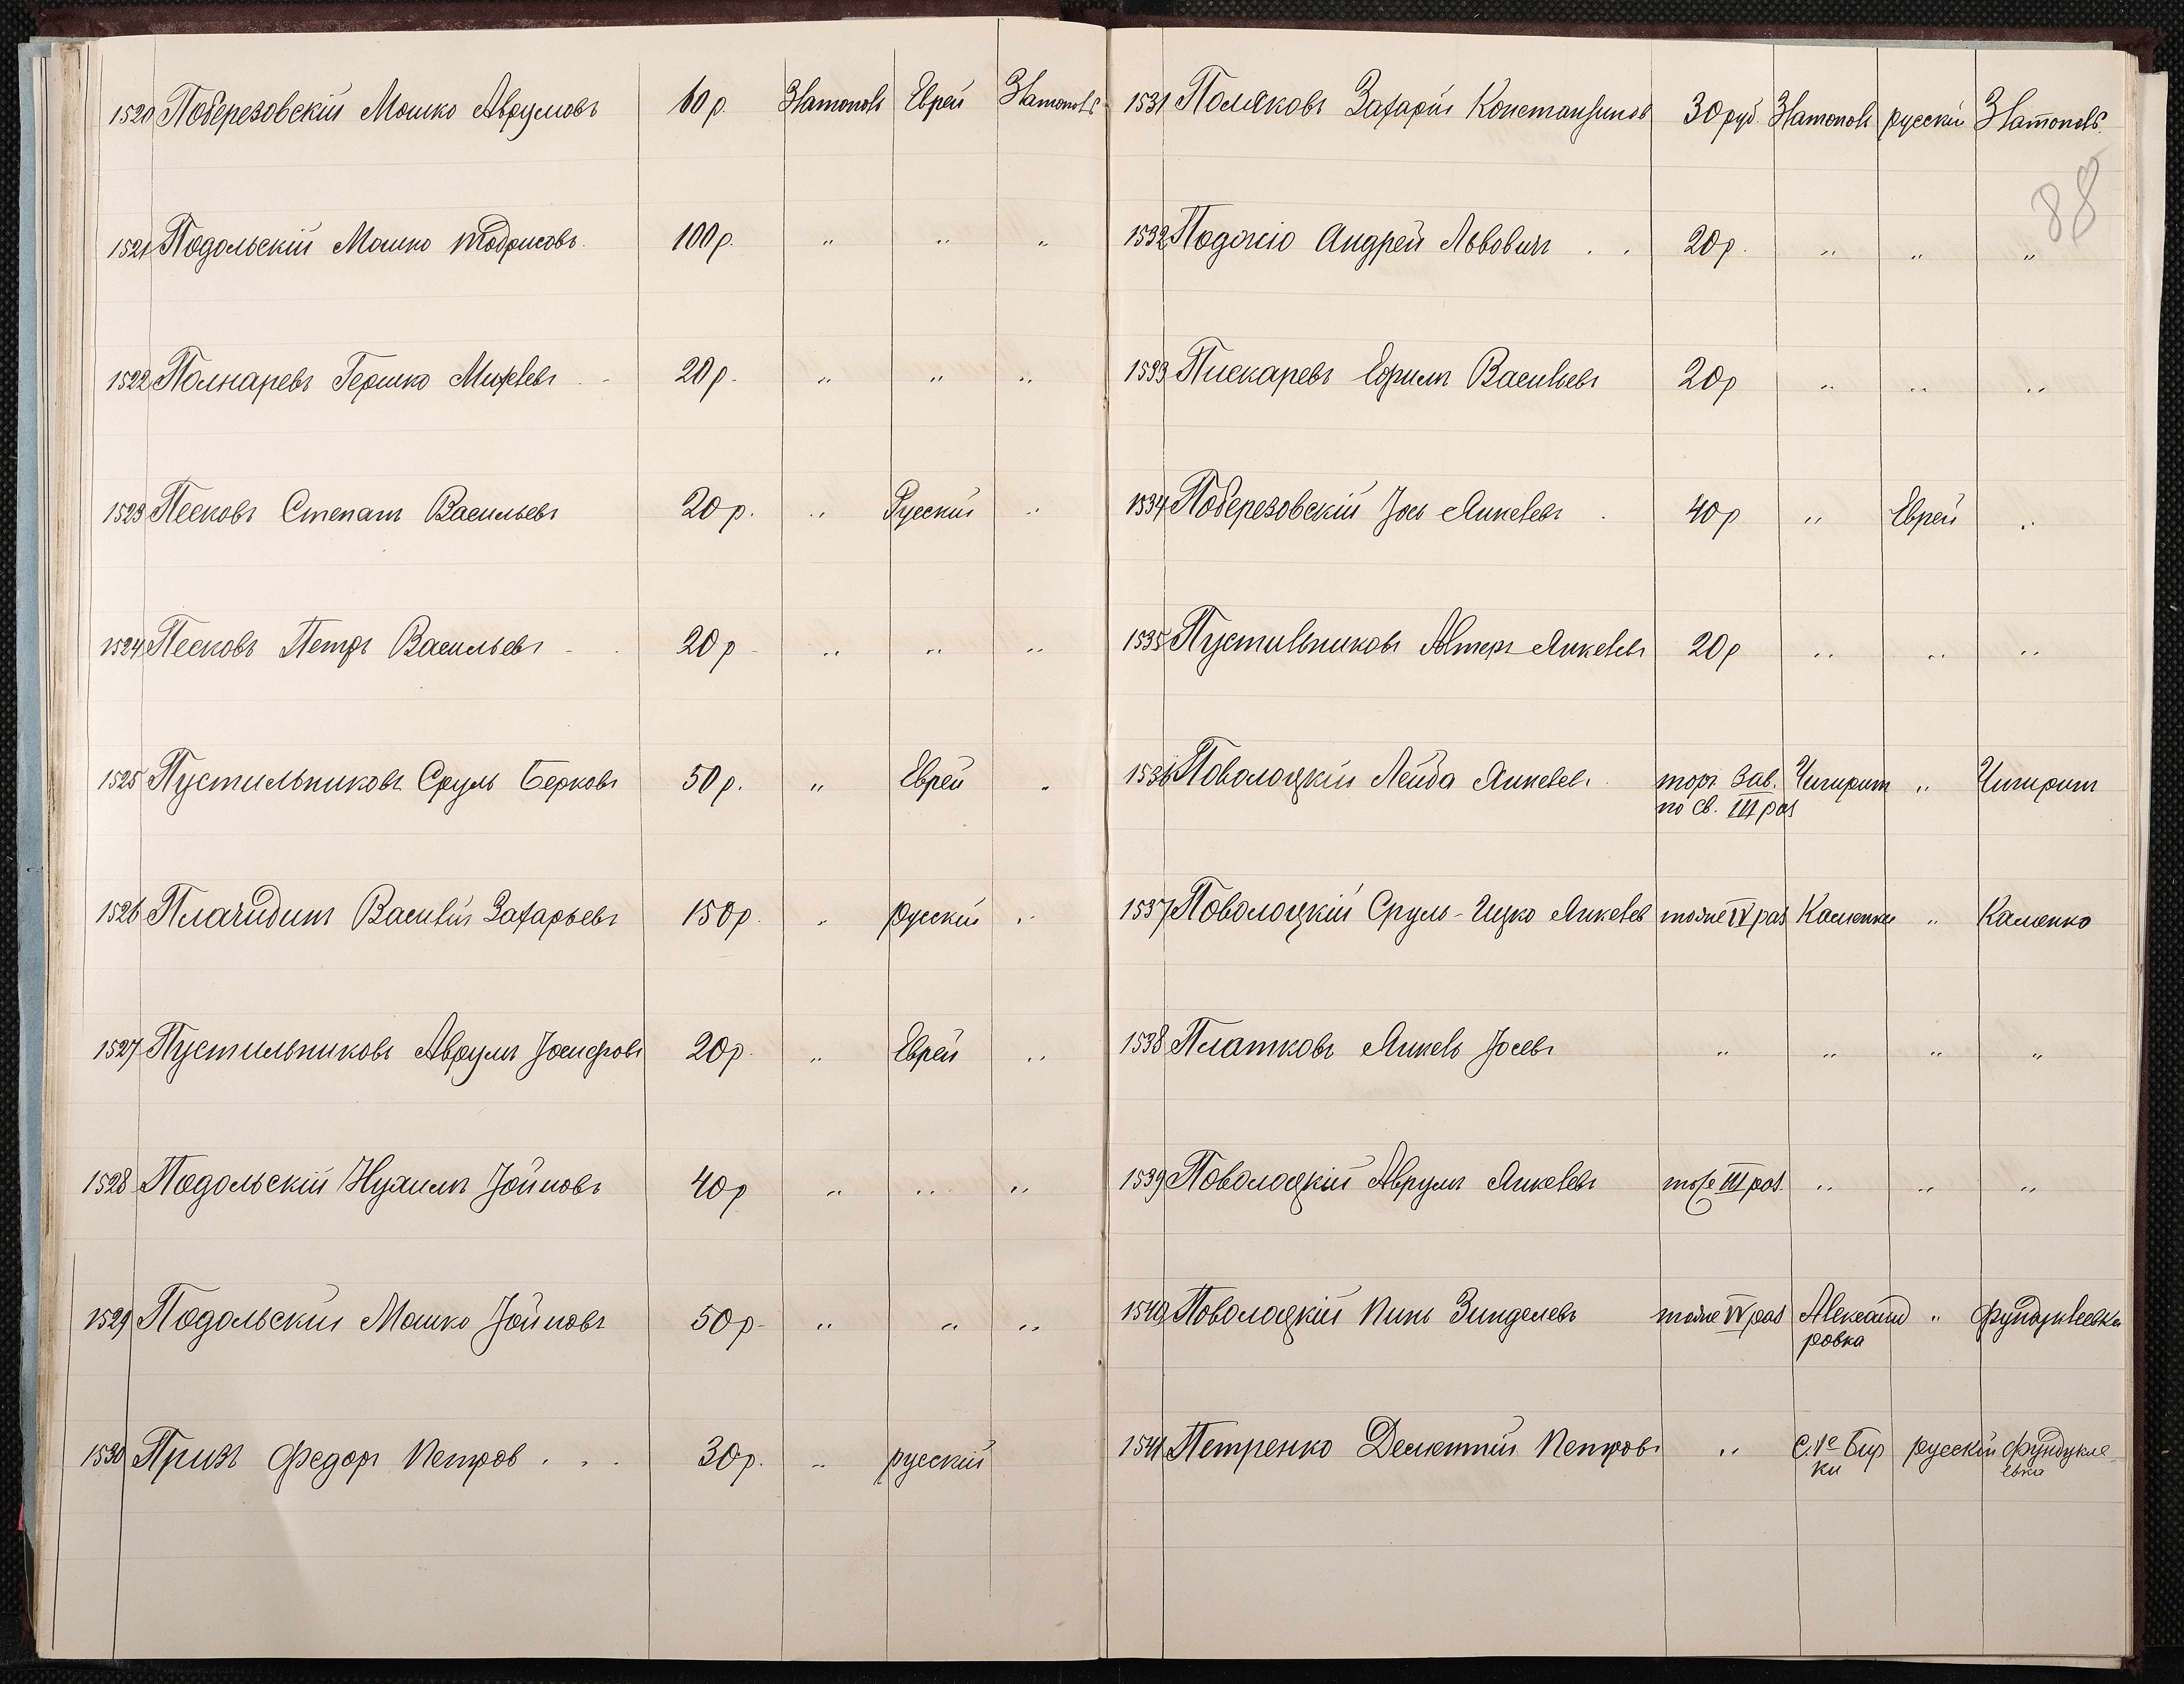 1520 Поберезовскій Мошко Аврумовъ 60 р. Златополь Еврей Златополь
1521 Подольскій Мошко Тодрисовъ 100 р. " " "
1522 Полнаревъ Гершко Михелевъ 20 р. " " "
1523 Песковъ Степанъ Васильевъ 20 р. " Русский "
1524 Песковъ Петръ Васильевъ 20 р " " "
1525 Пустильниковъ Сруль Берковъ 50 р. " Еврей "
1526 Плачидинъ Василій Захарьевъ 150 р. " русский "
1527 Пустильниковъ Аврумъ Іосифовъ 20 р. " Еврей "
1528 Подольскій Нухимъ Іойновъ 40 р " " "
1529 Подольский Мошко Іойновъ 50 р " " "
1530 Призъ Федоръ Петров 30 р. " русскій
88
1531 Поляковъ Захарій Константинов 30 руб. Златополь русский Златополь
1532 Андрей Львовичъ 20 р. " " "
1533 Пискаревъ Ефримъ Васильевъ 20 р " " "
1534 Поберезовскій Іось Янкелевъ 40 р " Еврей "
1535 Пустильниковъ Алтеръ Янкелевъ 20 р " " "
1536 Поволоцкій Лейба Янкелев. торг. зав. Чигирин " Чигирин
по св. III раз
1537 Поволоцкій Сруль-Ицко Янкелев тоже IV раз Каменка " Каменко
1538 Платковъ Янкель Іосевъ " " " "
1539 Поволоцкій Аврумъ Янкелевъ тоже III раз. " " "
1540 Поволоцкій Пинь Зинделевъ тоже IV раз Александ " Фундуклеевка
ровка
1541 Петренко Дементій Петровъ " с. Бир русскій Фундукле
ки евка